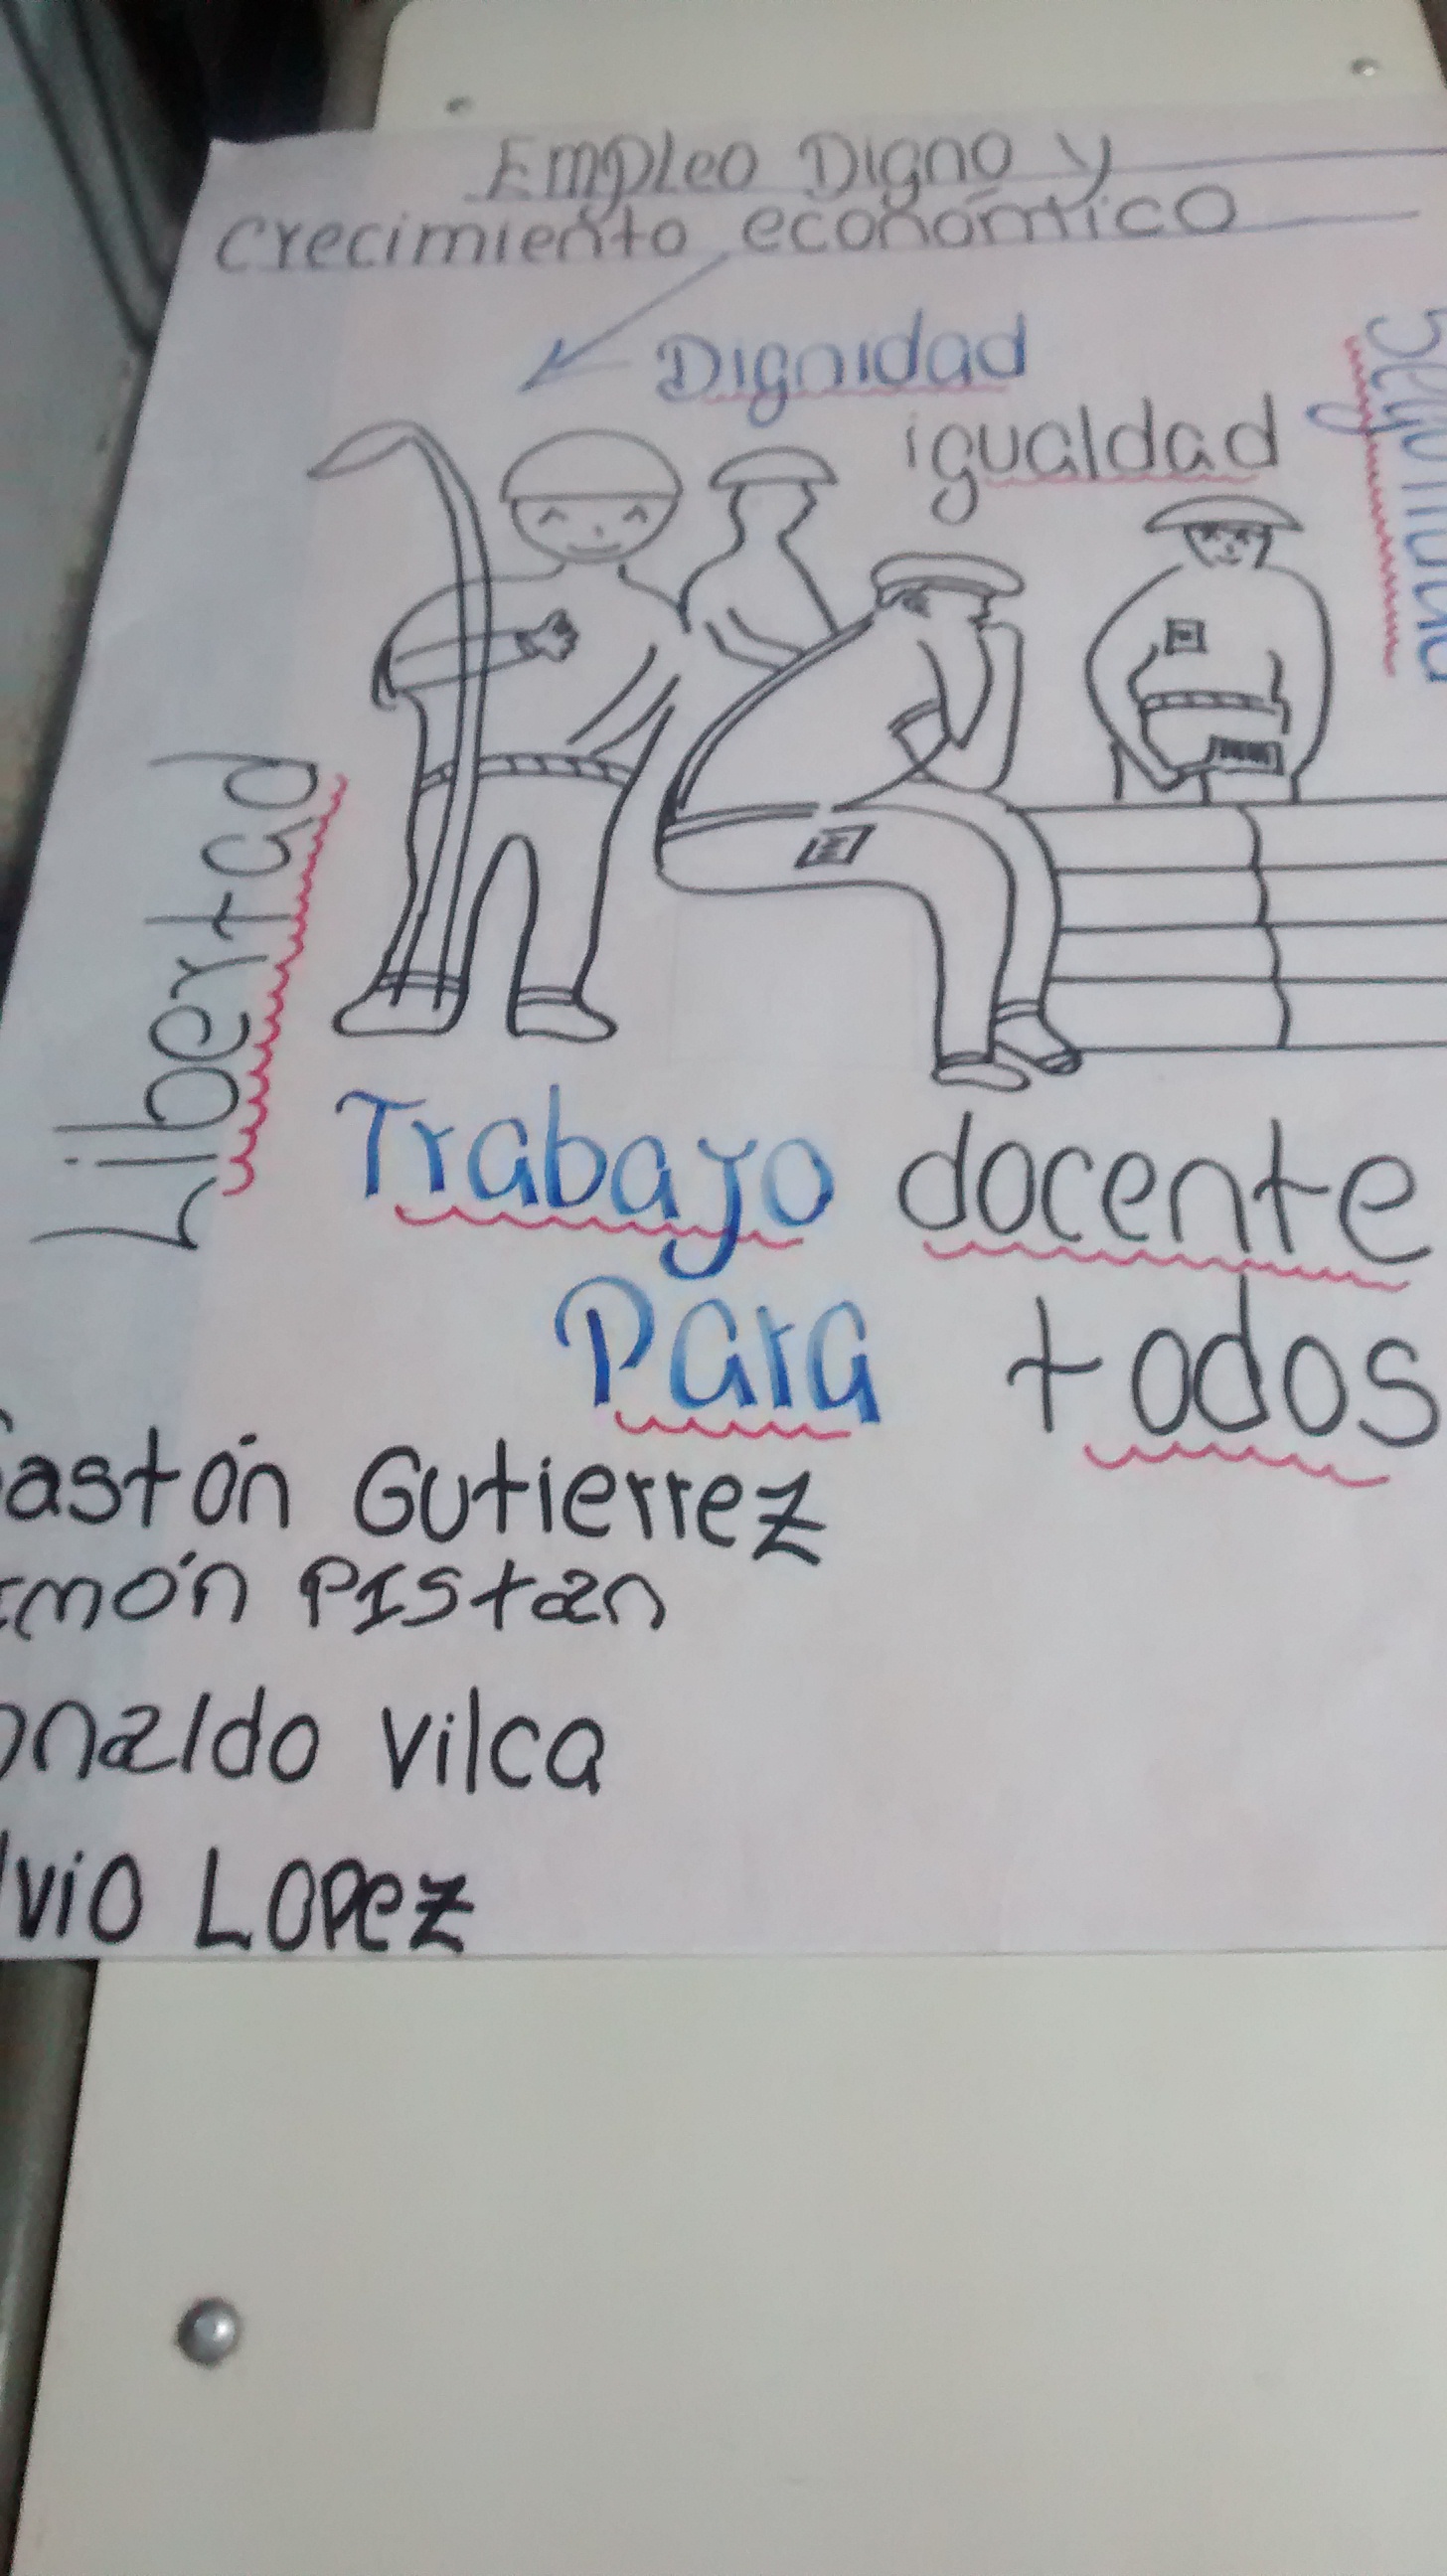 Empleo Digno y
crecimiento económico
Dignidad
igualdad
Seguridad
Libertad
Trabajo docente
Para todos
Gastón Gutierrez
món PIStan
onaldo Vilca
lvio LOPez